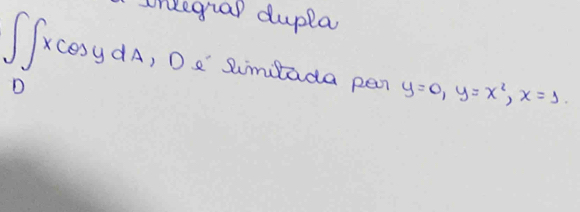 integral dupla
∬ x cos y dA, D é limitada por y=0, y=x², x=1.
D